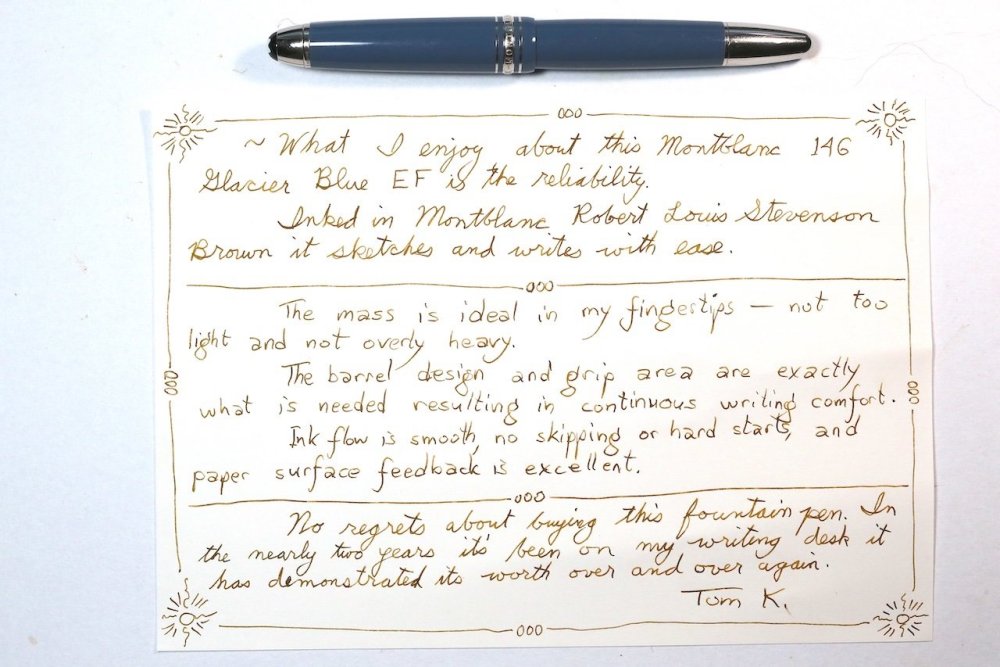 ~ What I enjoy about this Montblanc 146
Glacier Blue EF is the reliability.
Inked in Montblanc Robert Louis Stevenson
Brown it sketches and writes with ease.
The mass is ideal in my fingertips — not too
light and not overly heavy.
The barrel design and grip area are exactly
what is needed resulting in continuous writing comfort.
Ink flow is smooth, no skipping or hard starts, and
paper surface feedback is excellent.
No regrets about buying this fountain pen. In
the nearly two years it's been on my writing desk it
has demonstrated its worth over and over again.
Tom K.